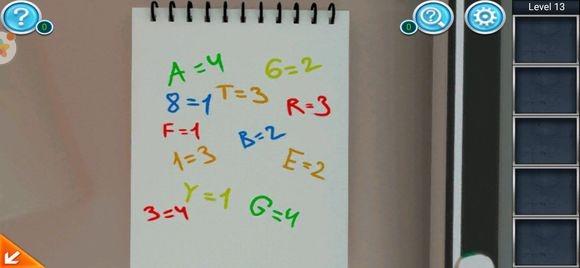 ?
0
0
Level 13
A=4 6=2
8=1 T=3 R=3
F=1 B=2
1=3 E=2
Y=1
3=4 G=4